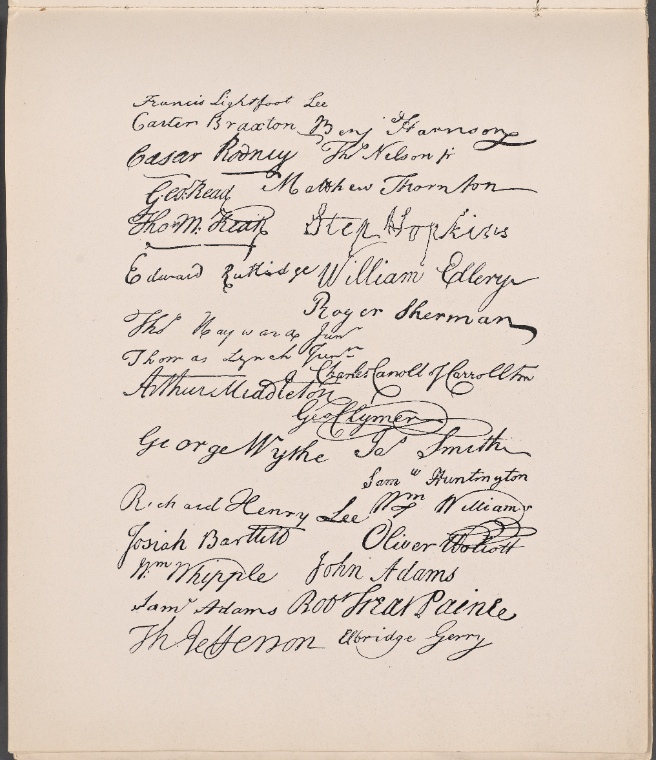 Francis Lightfoot Lee
Carter Braxton Benj Harrison
Caesar Rodney Thos Nelson jr
Geo. Read Matthew Thornton
Tho M. Kean Step Hopkins
Edward Rutlidge William Ellery
Roger Sherman
Thos Hayward Junr
Thomas Lynch Junr
Charles Carroll of Carrollton
Arthur Middleton
Geo Clymer
George Wythe Jas Smith
Saml Huntington
Richard Henry Lee Wm Williams
Josiah Bartlett Oliver Wolcott
Wm Whipple John Adams
Saml Adams Robt Treat Paine
Th Jefferson Elbridge Gerry